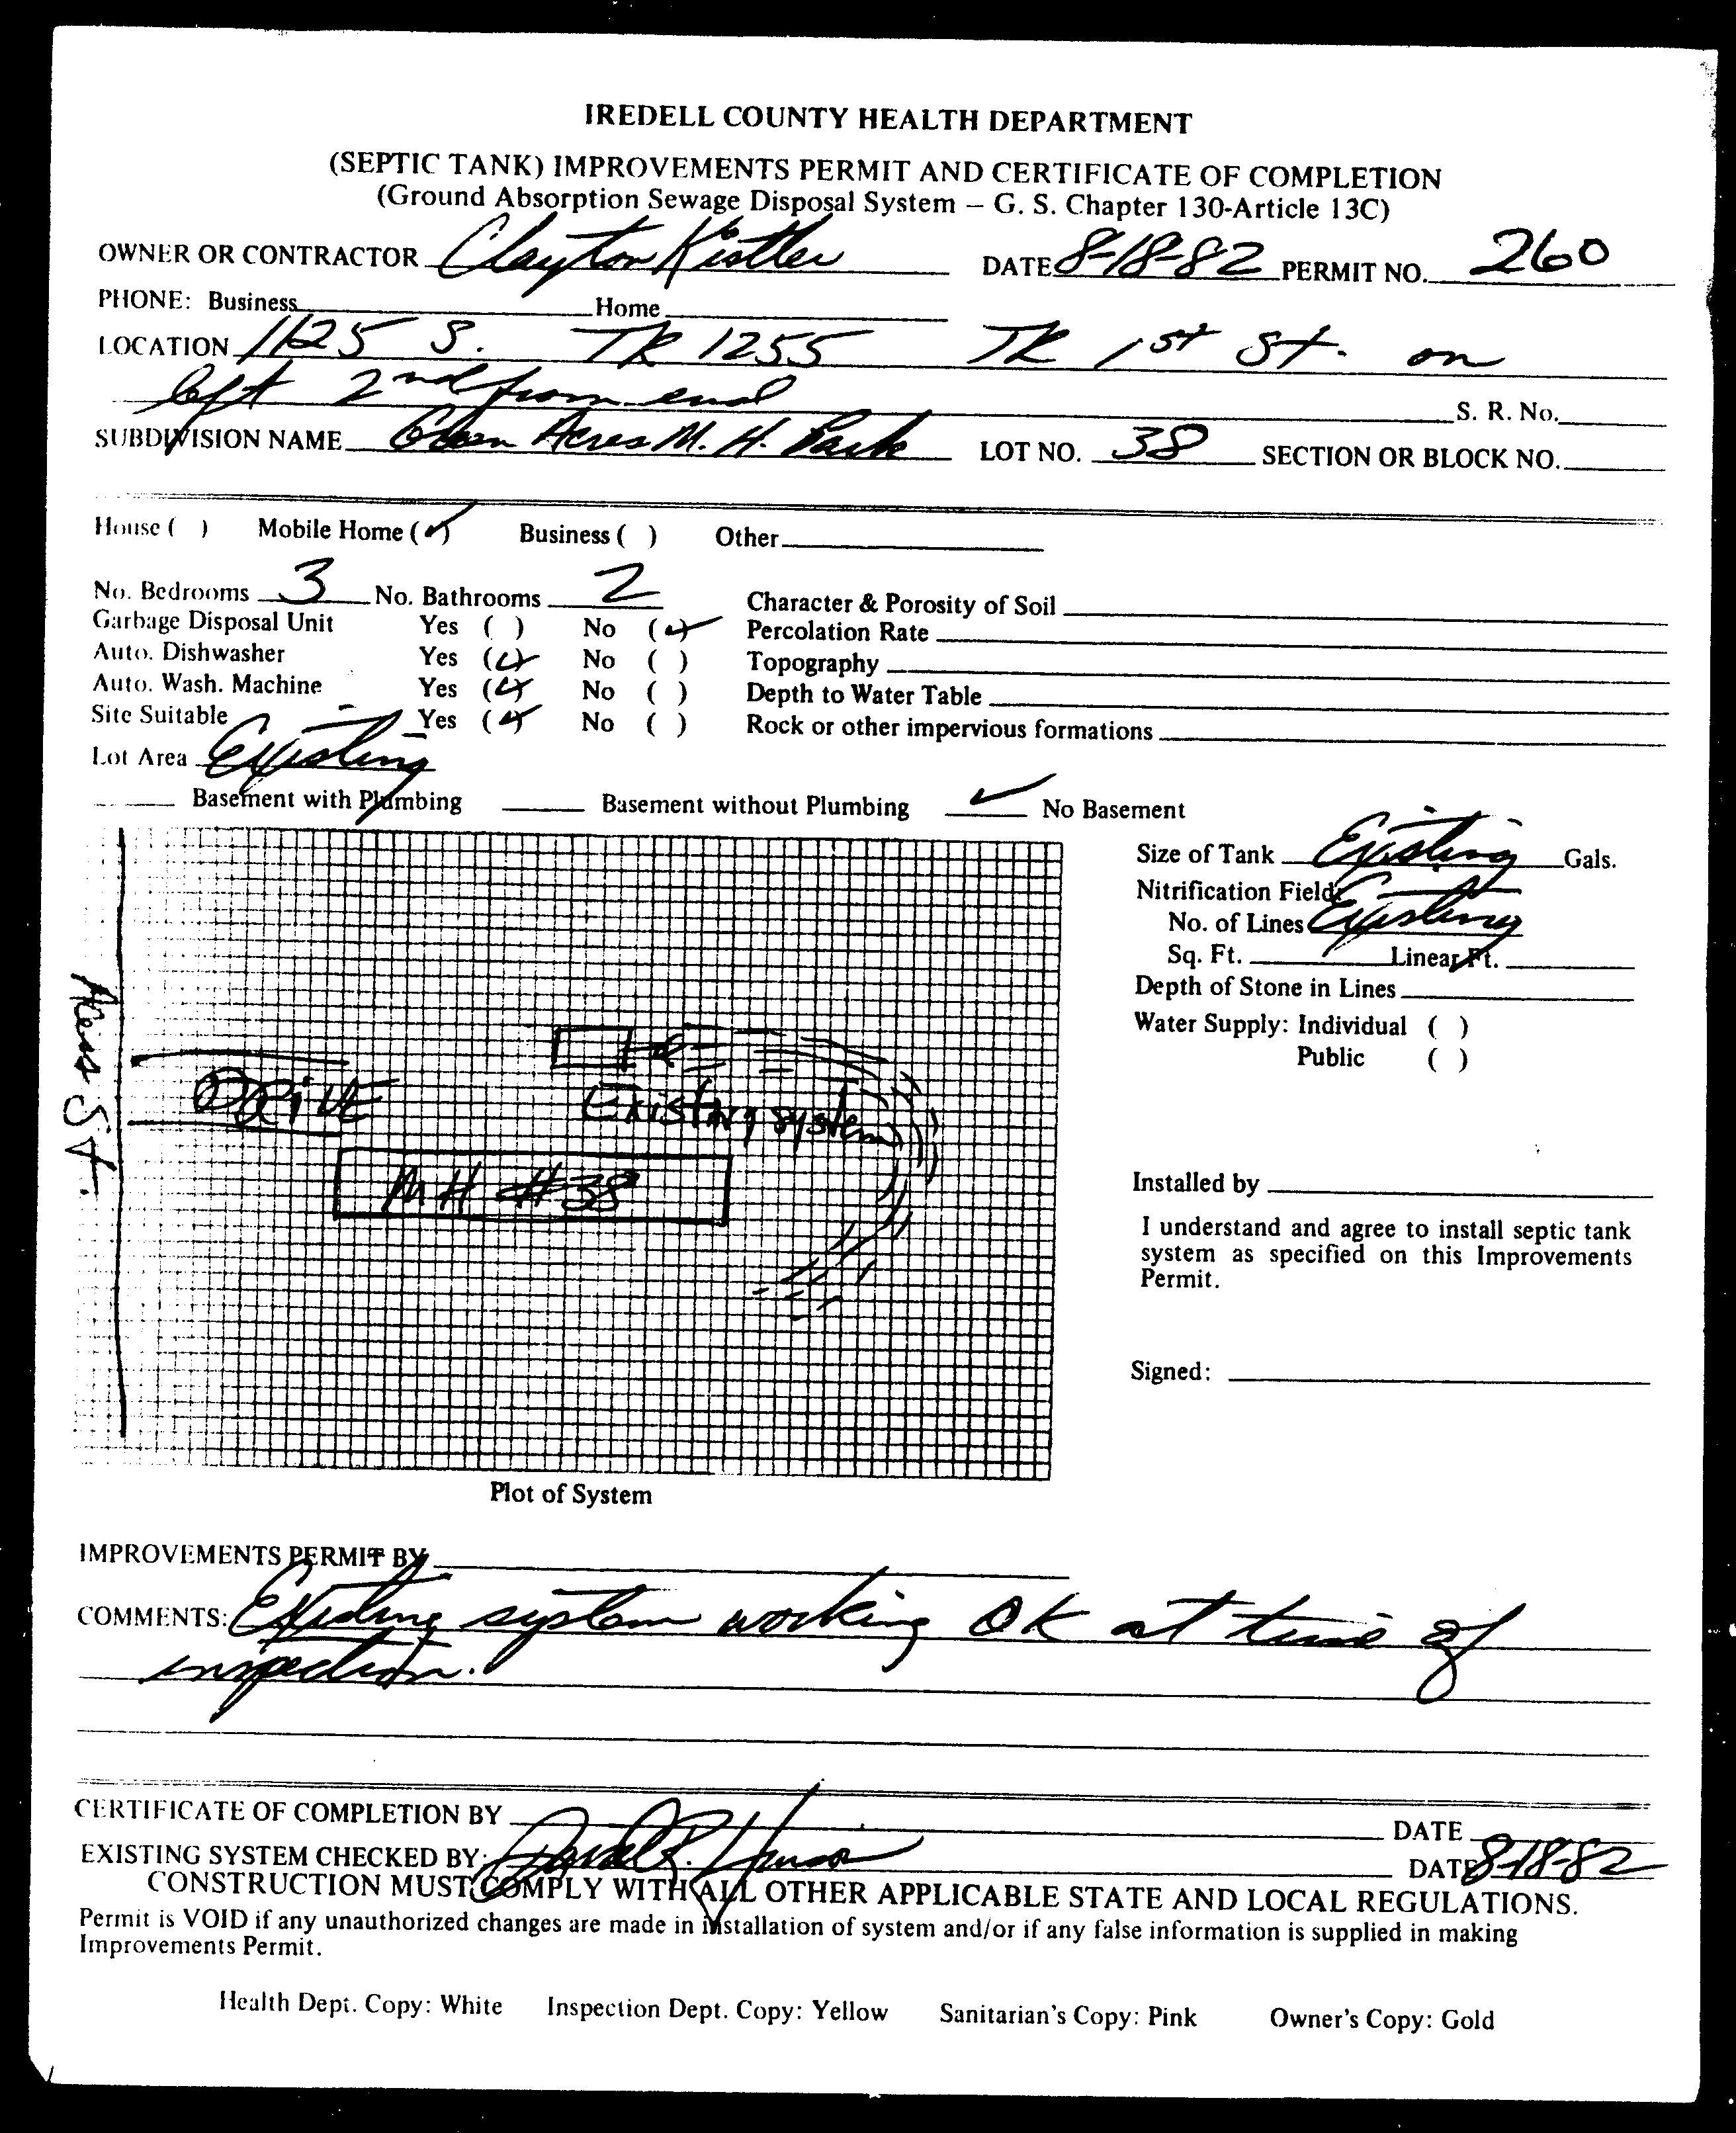 IREDELL COUNTY HEALTH DEPARTMENT
(SEPTIC TANK) IMPROVEMENTS PERMIT AND CERTIFICATE OF COMPLETION
(Ground Absorption Sewage Disposal System – G. S. Chapter 130-Article 13C)
OWNER OR CONTRACTOR Clayton Kistler DATE 8-18-82 PERMIT NO. 260
PHONE: Business Home
LOCATION 1125 S. TR 1255 TR 1st St. on
left 2nd from end S. R. No.
SUBDIVISION NAME Acres M. H. Park LOT NO. 38 SECTION OR BLOCK NO.
House ( ) Mobile Home (✓) Business ( ) Other
No. Bedrooms 3 No. Bathrooms 2 Character & Porosity of Soil
Garbage Disposal Unit Yes ( ) No (✓) Percolation Rate
Auto. Dishwasher Yes (✓) No ( ) Topography
Auto. Wash. Machine Yes (✓) No ( ) Depth to Water Table
Site Suitable Yes (✓) No ( ) Rock or other impervious formations
Lot Area Existing
Basement with Plumbing Basement without Plumbing ✓ No Basement
Size of Tank Existing Gals.
Nitrification Field:
No. of Lines Existing
Sq. Ft. Linear Ft.
Depth of Stone in Lines
Water Supply: Individual ( )
Public ( )
St.
DRIVE
Existing system
MH #38
Installed by
I understand and agree to install septic tank
system as specified on this Improvements
Permit.
Signed:
Plot of System
IMPROVEMENTS PERMIT BY
COMMENTS: Existing system working OK at time of
inspection.
CERTIFICATE OF COMPLETION BY DATE
EXISTING SYSTEM CHECKED BY: DATE 8-18-82
CONSTRUCTION MUST COMPLY WITH ALL OTHER APPLICABLE STATE AND LOCAL REGULATIONS.
Permit is VOID if any unauthorized changes are made in installation of system and/or if any false information is supplied in making
Improvements Permit.
Health Dept. Copy: White Inspection Dept. Copy: Yellow Sanitarian's Copy: Pink Owner's Copy: Gold